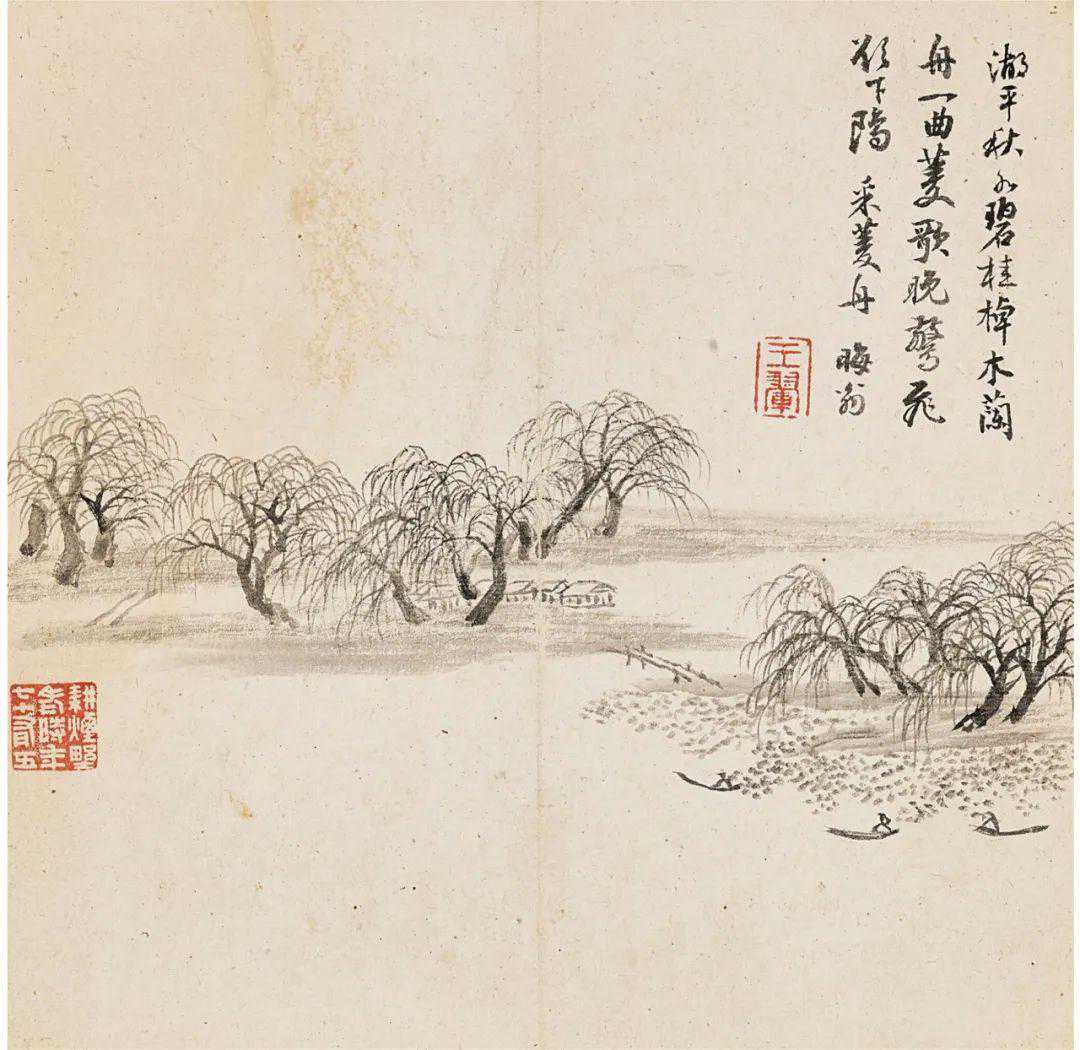 湖平秋水碧桂棹木蘭
舟一曲菱歌晚驚飛
欲下鷗 采菱舟 晦翁
王翬
耕煙野
老時年
七十有五